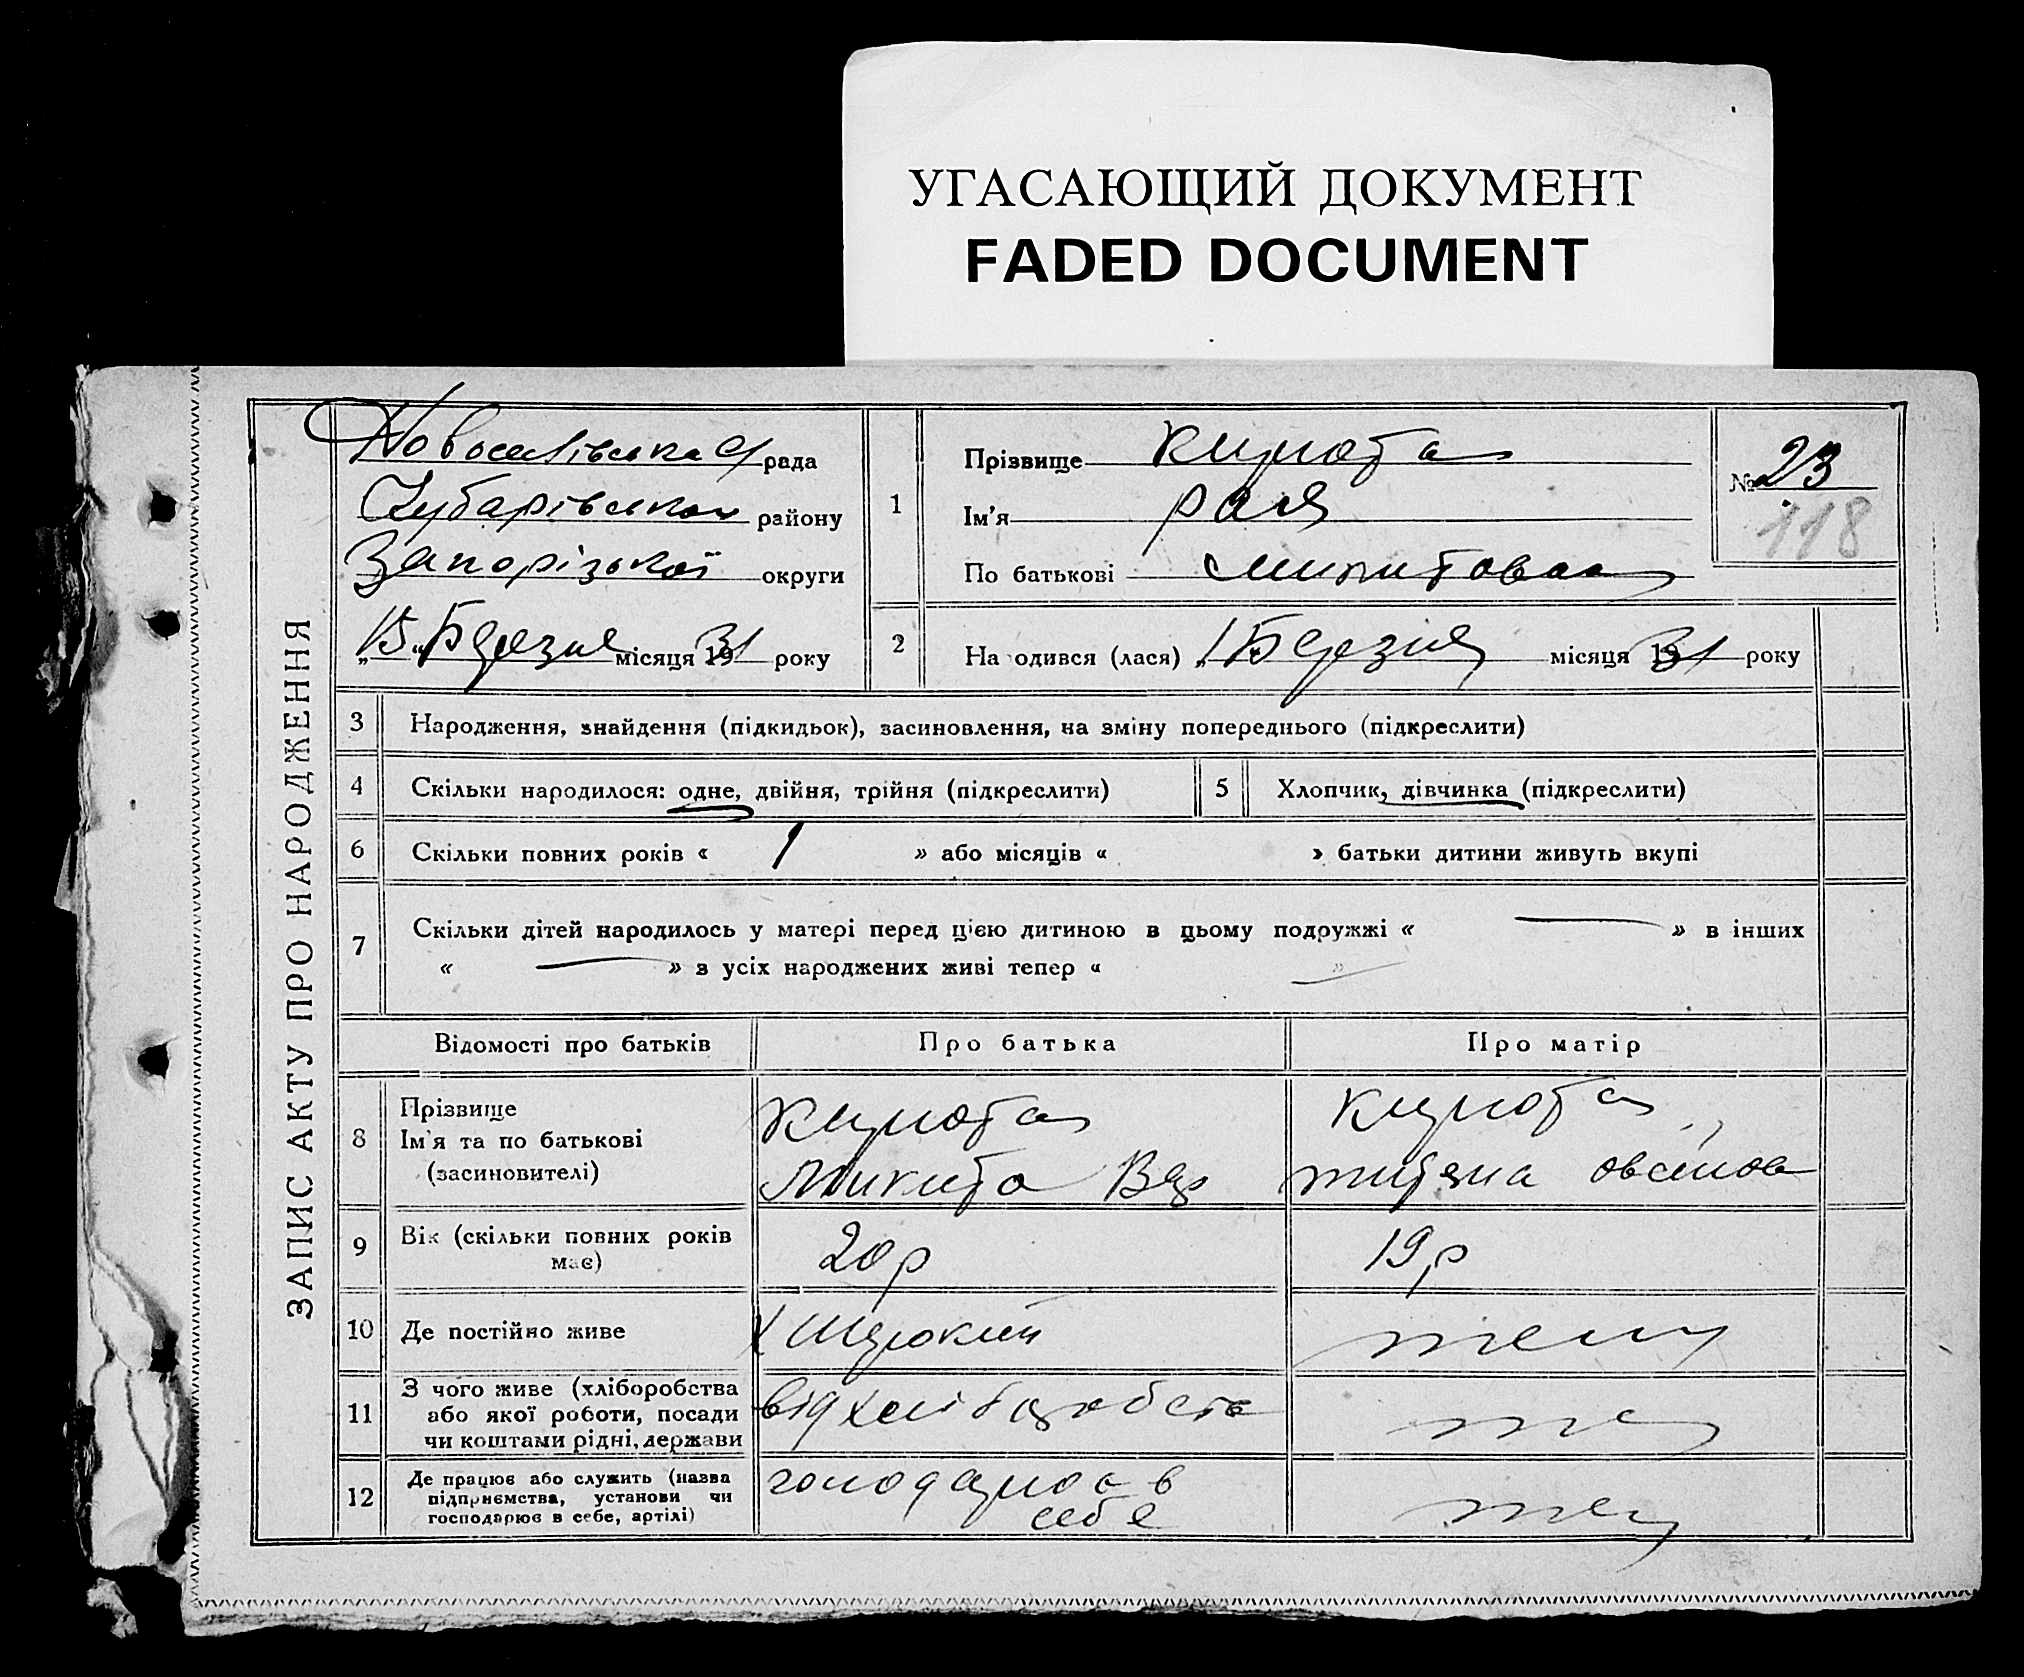 УГАСАЮЩИЙ ДОКУМЕНТ
FADED DOCUMENT
ЗАПИС АКТУ ПРО НАРОДЖЕННЯ
Новоселівська рада
Чубарівського району
Запорізької округи
„15“ Березня місяця 1931 року
1
Прізвище
Ім'я Рая
По батькові Микитовна
№ 23
118
2 На одився (лася) „1 Березня місяця 1931 року
3 Народження, знайдення (підкидьок), засиновлення, на зміну попереднього (підкреслити)
4 Скільки народилося: одне, двійня, трійня (підкреслити) 5 Хлопчик, дівчинка (підкреслити)
6 Скільки повних років « 1 » або місяців « » батьки дитини живуть вкупі
7 Скільки дітей народилось у матері перед цією дитиною в цьому подружжі « — » в інших
« — » з усіх народжених живі тепер « — »
Відомості про батьків Про батька Про матір
8 Прізвище
Ім'я та по батькові
(засиновителі)
Микита
9 Вік (скільки повних років
має)
20 р 19 р
10 Де постійно живе Х Широкий
11 З чого живе (хліборобства
або якої роботи, посади
чи коштами рідні, держави
від хліборобств
12 Де працює або служить (назва
підприємства, установи чи
господарює в себе, артілі)
в
себе